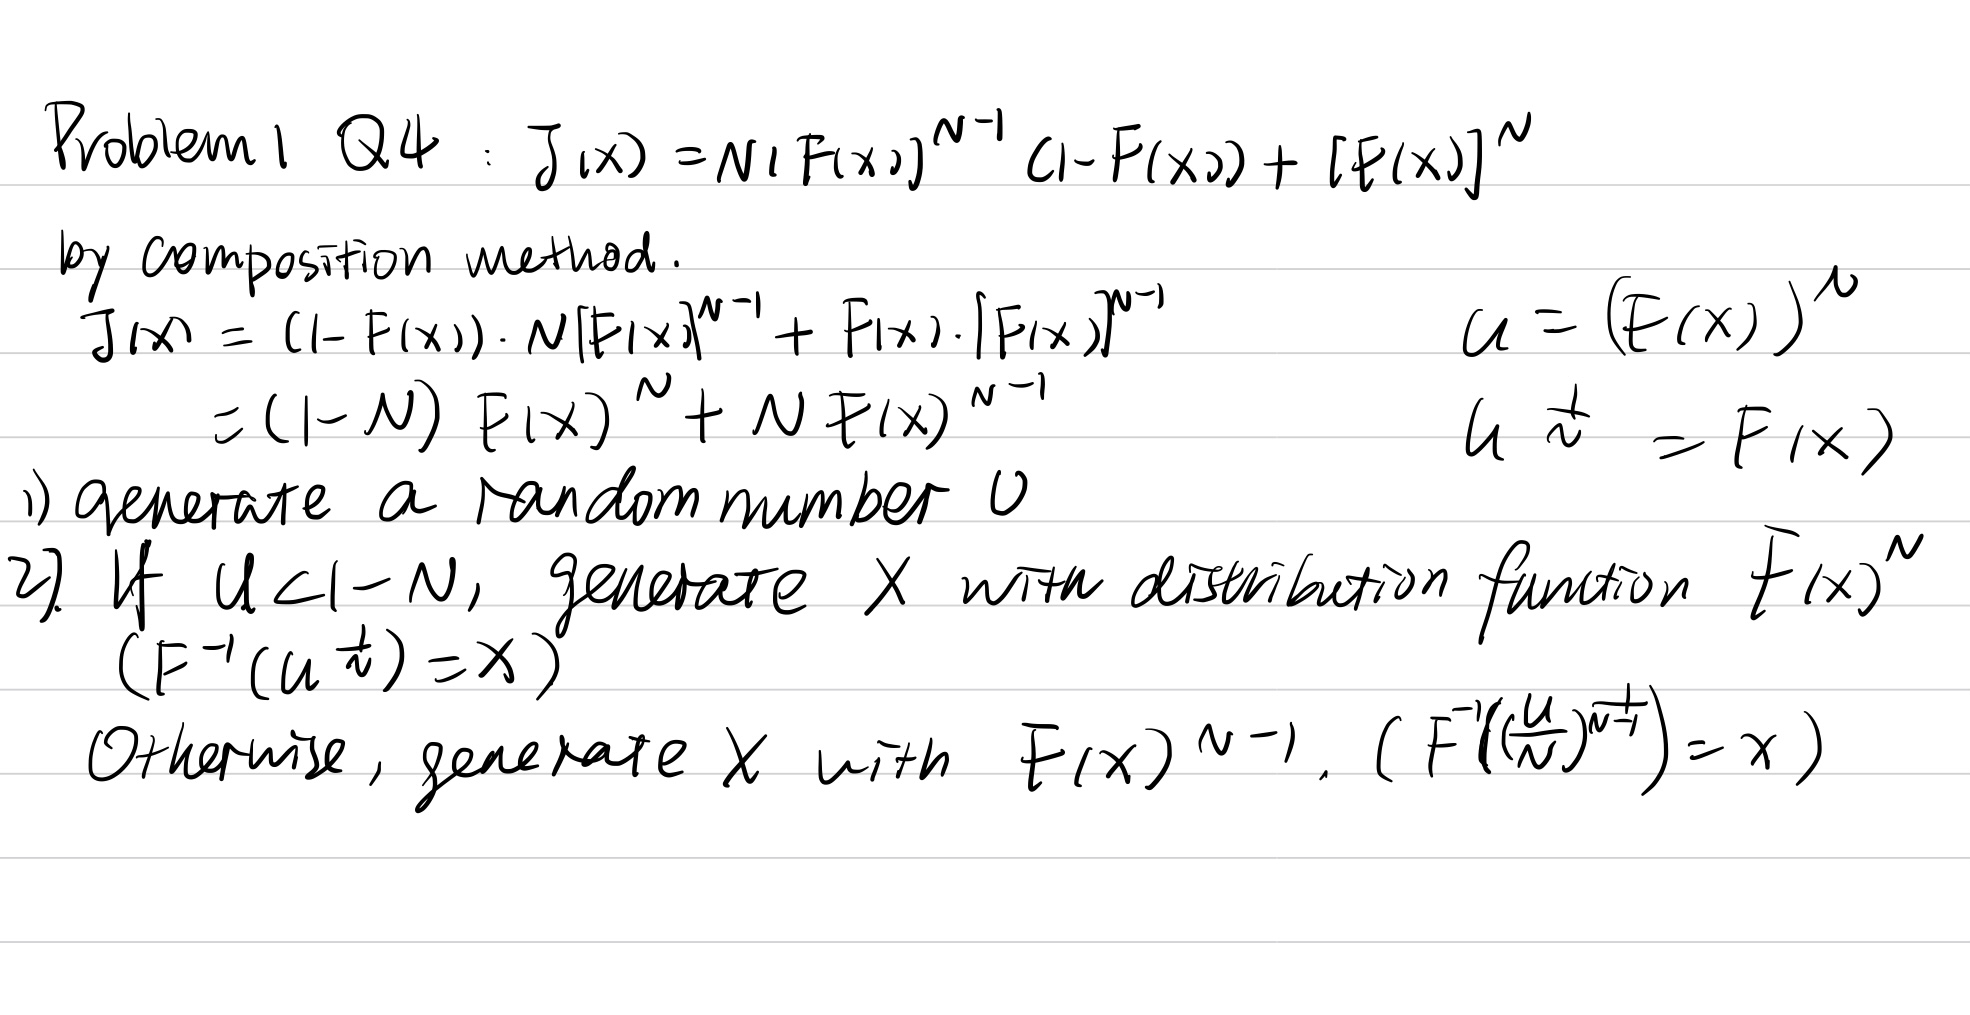 Problem 1 Q4 : J(x) = N[F(x)]^{N-1} (1-F(x)) + [F(x)]^N
by composition method.
J(x) = (1-F(x)) · N[F(x)]^{N-1} + F(x) · [F(x)]^{N-1}
= (1-N) F(x)^N + N F(x)^{N-1}
u = (F(x))^N
u^{1/N} = F(x)
1) generate a random number U
2). If U<1-N, generate X with distribution function F(x)^N
(F^{-1}(u^{1/N}) = x)
Otherwise, generate X with F(x)^{N-1}. (F^{-1}((u/N)^{1/(N-1)}) = x)